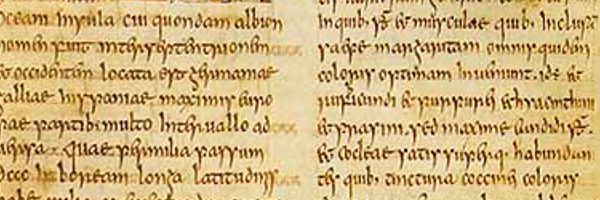 oceani insula cui quondam albion
nomen fuit inter septentrionem
et occidentem locata est germaniae
galliae hispaniae maximis euro
pae partib. multo interuallo ad
uersa. Quae per milia passuum
dccc in boream longa latitudinis
in quib. et musculae quib. inclusā
saepe margaritam omnis quidem
coloris optimam inueniunt. id ē et
rubicundi et purpurei et hyacinthini
et prasini. sed maxime candidi
et cocleae satis superq. habundan
tes quib. tinctura coccinei coloris